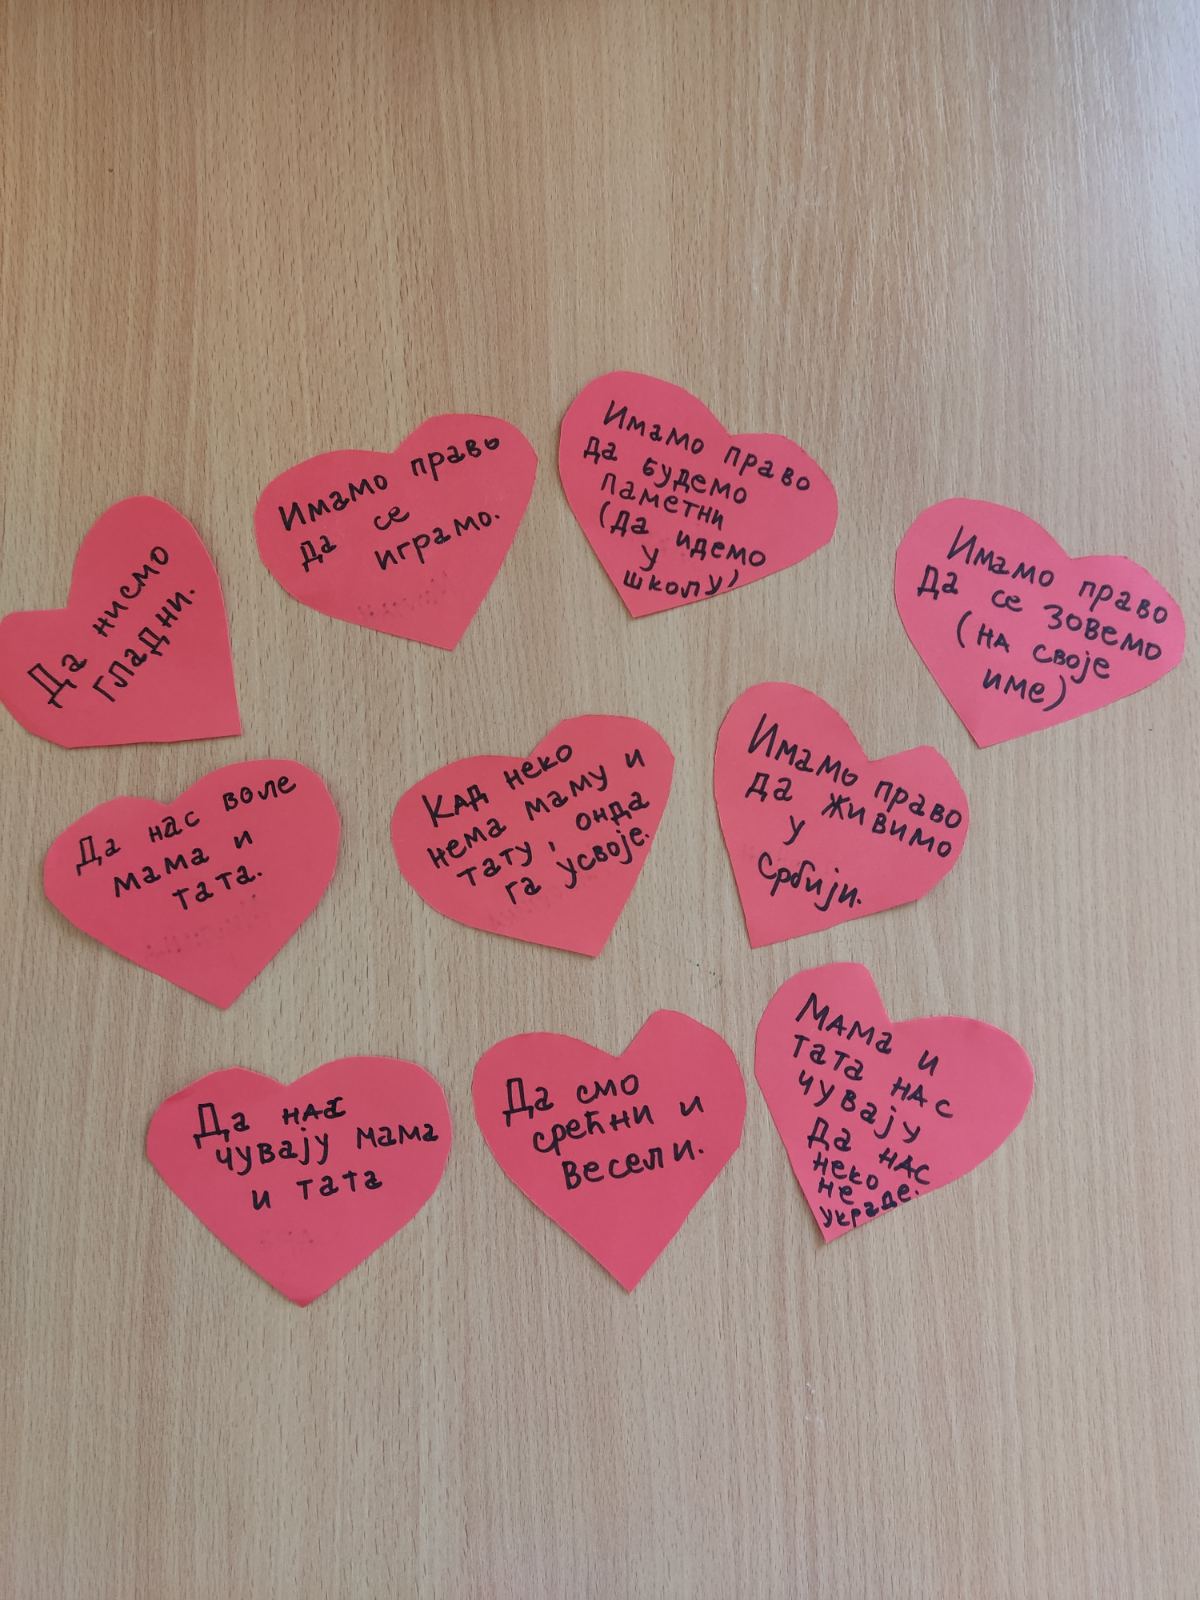 Да нисмо
гладни.
Имамо право
да се
играмо.
Имамо право
да будемо
паметни
(да идемо
у
школу)
Имамо право
да се зовемо
(на своје
име)
Да нас воле
мама и
тата.
Кад неко
нема маму и
тату, онда
га усвоје.
Имамо право
да живимо
у
Србији.
Да нас
чувају мама
и тата
Да смо
срећни и
весели.
Мама и
тата нас
чувају
да нас
неко
не
украде.